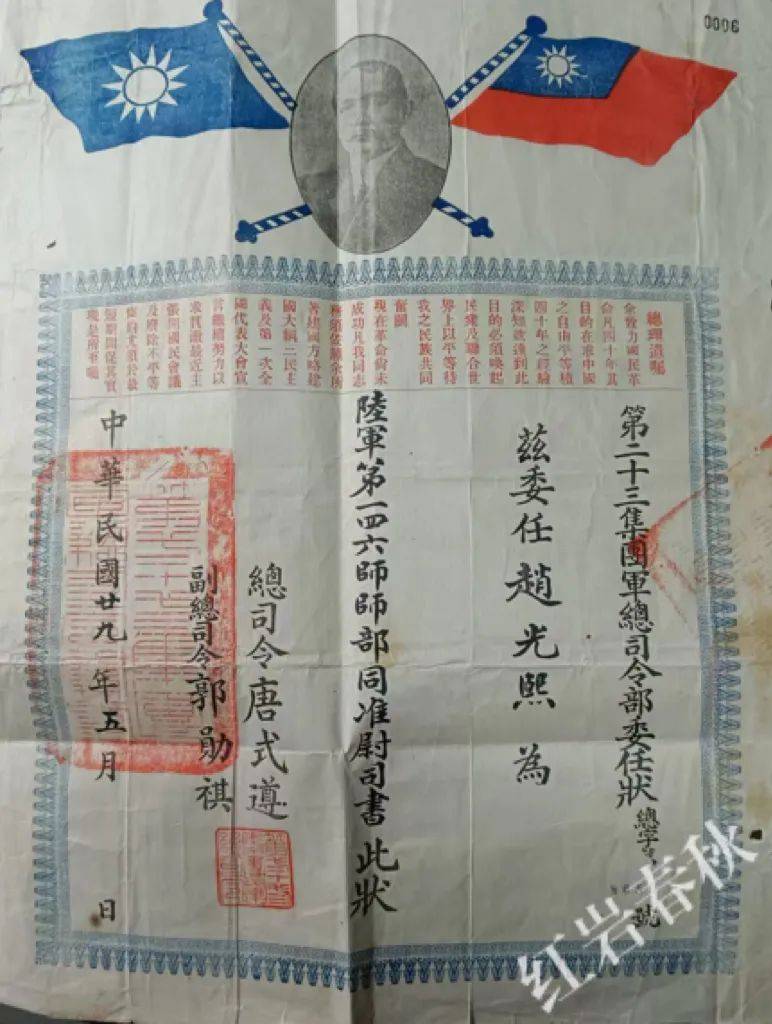 0006
總理遺囑
余致力國民革
命凡四十年其
目的在求中國
之自由平等積
四十年之經驗
深知欲達到此
目的必須喚起
民衆及聯合世
界上以平等待
我之民族共同
奮鬪
現在革命尚未
成功凡我同志
務須依照余所
著建國方略建
國大綱三民主
義及第一次全
國代表大會宣
言繼續努力以
求貫澈最近主
張開國民會議
及廢除不平等
條約尤須於最
短期間促其實
現是所至囑
第二十三集團軍總司令部委任狀 總字第 號
茲委任趙光熙為
陸軍第一四六師師部同准尉司書此狀
總司令唐式遵
副總司令郭勛祺
中華民國廿九年五月 日
红岩春秋